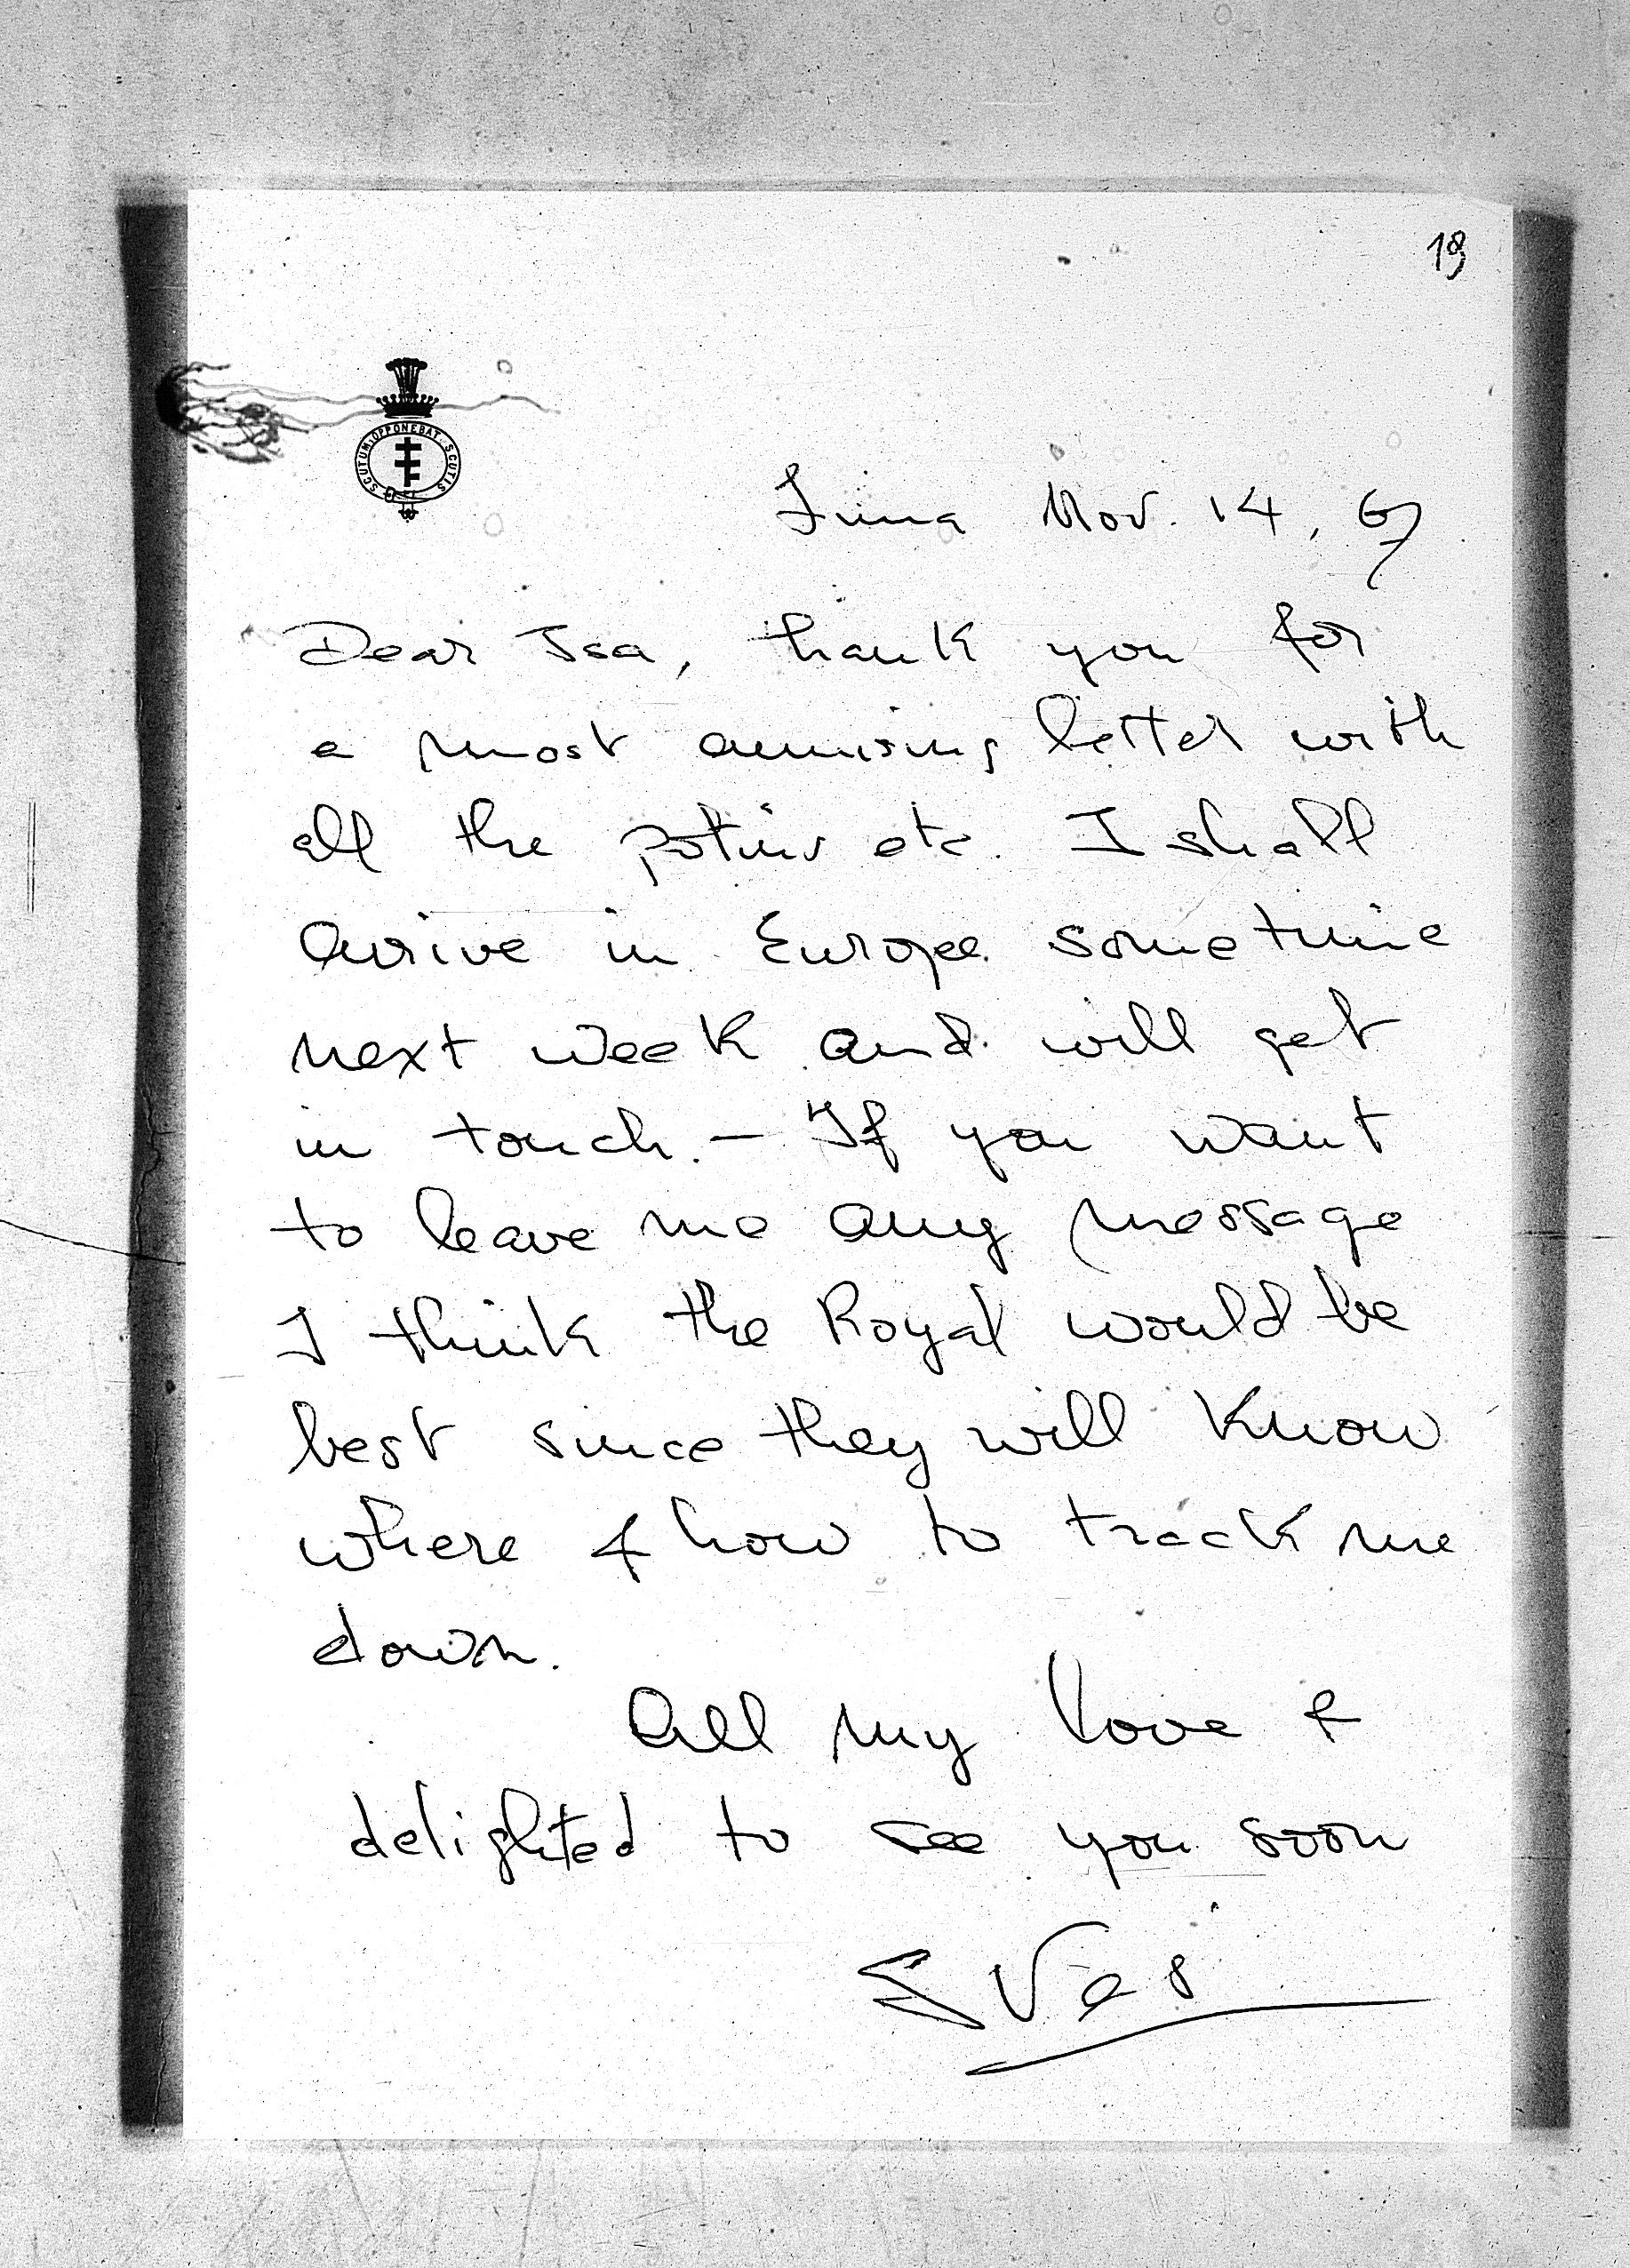 19
SCUTUM OPPONEBAT SCUTIS
Lima Nov. 14, 67
Dear Isa, thank you for
a most amusing letter with
all the potins etc. I shall
arrive in Europe sometime
next week and will get
in touch. — If you want
to leave me any message
I think the Royal would be
best since they will know
where & how to track me
down.
All my love &
delighted to see you soon